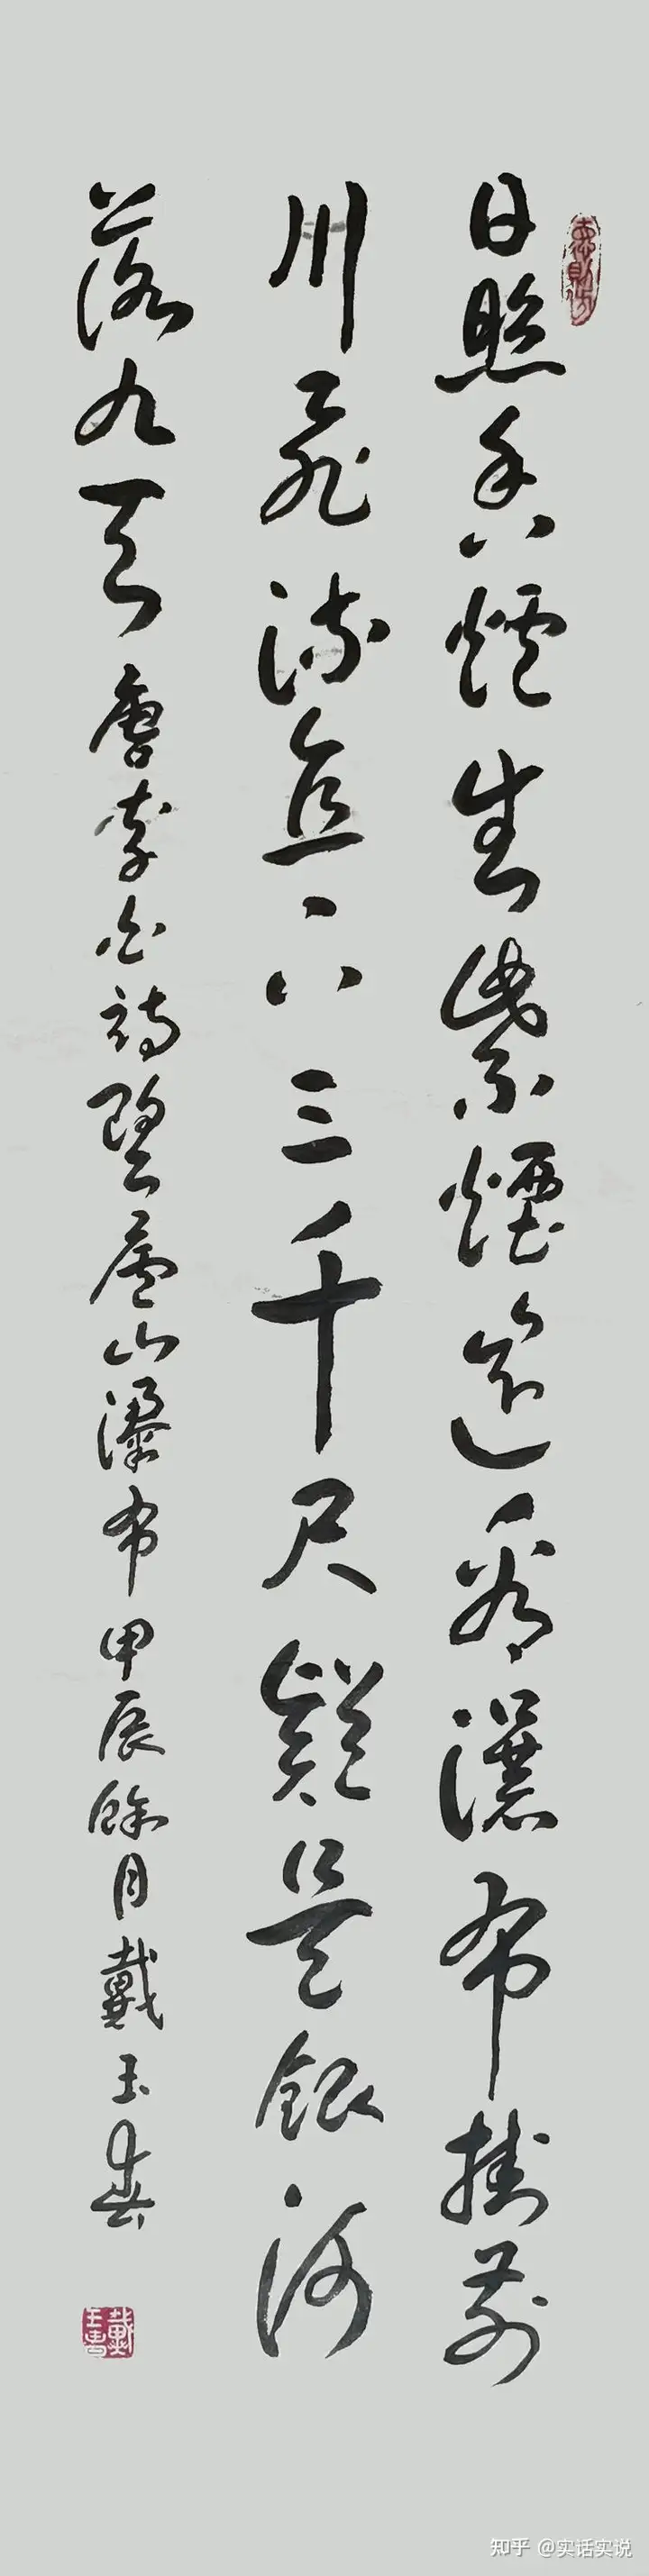 日照香爐生紫煙遙看瀑布掛前
川飛流直下三千尺疑是銀河
落九天唐李白詩望廬山瀑布甲辰餘月戴玉春
知乎 @实话实说